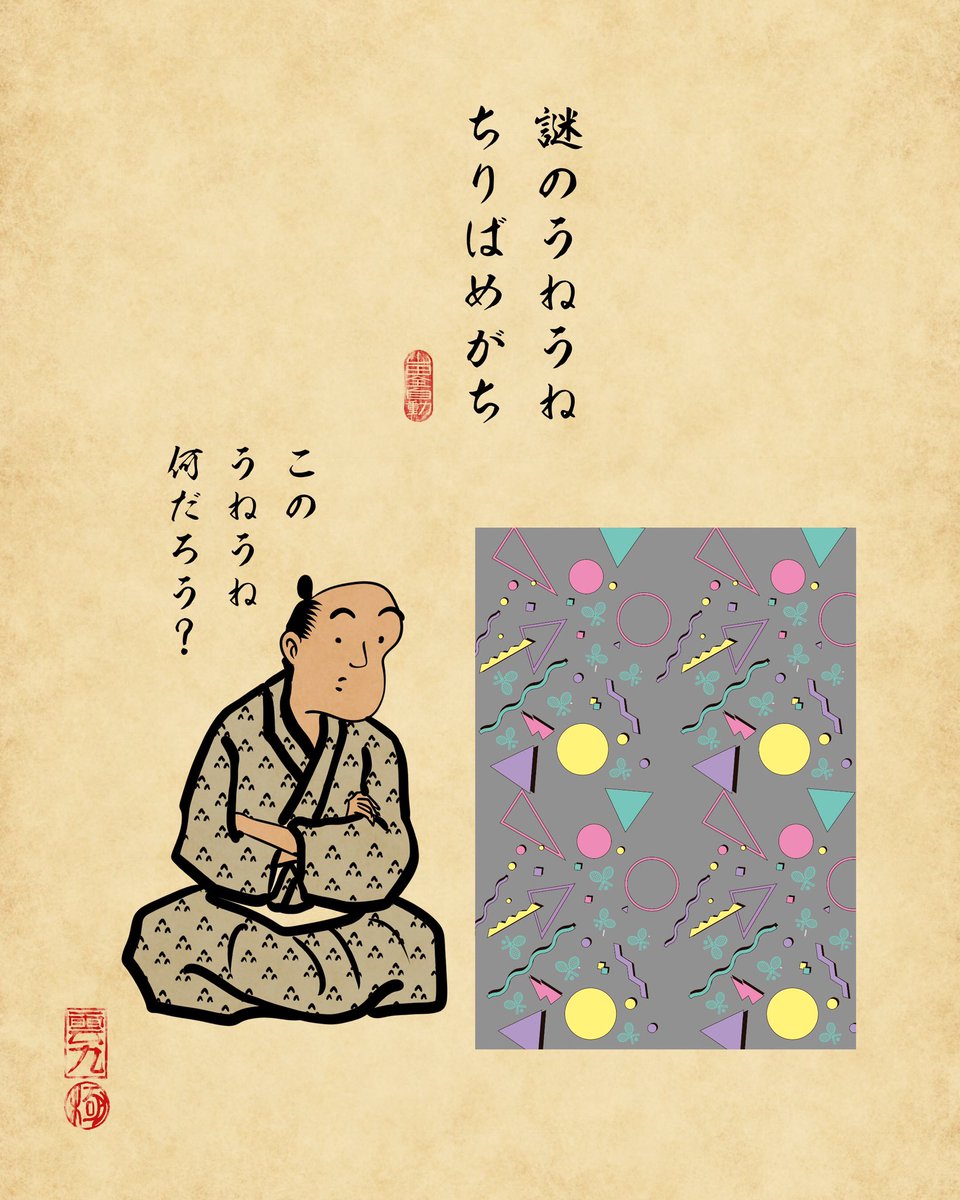 謎のうねうね
ちりばめがち
この
うねうね
何だろう？
雲九
極